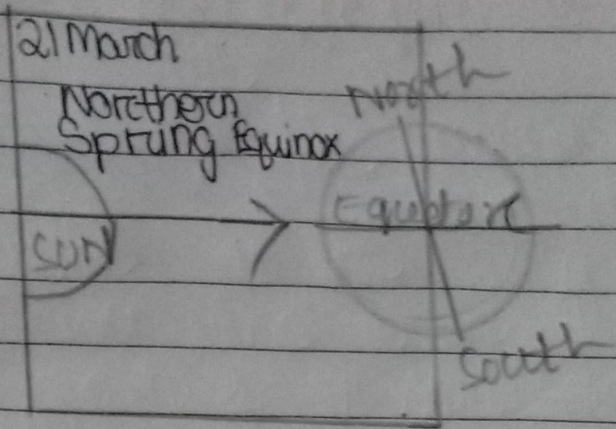 21 March
Northern
Sprung Equinox
North
Equator
SUN
South